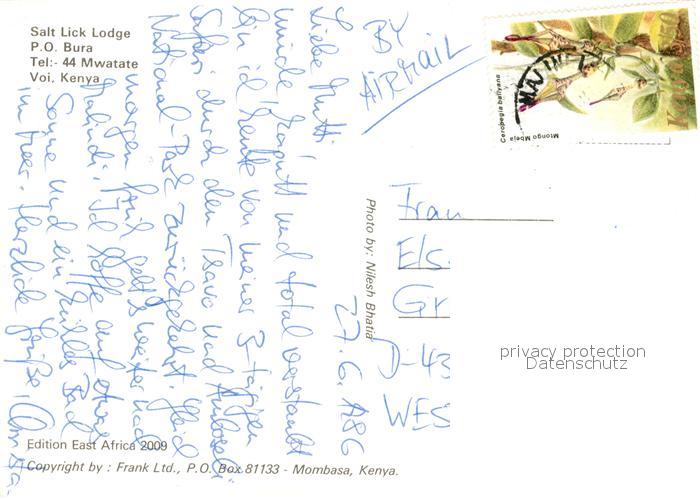 Salt Lick Lodge
P.O. Bura
Tel:- 44 Mwatate
Voi, Kenya
BY
AIRMAIL
Ceropegia ballyana
Mtongo Mbeja
27.6.1986
Liebe Mutti!
müde, kaputt und total verstaubt
bin ich heute von meiner 3-tägigen
Safari durch den Tsavo und Amboseli
National-Park zurückgekehrt.
morgen früh geht's weiter nach
Malindi. Ich hoffe auf etwas
Sonne und ein kühles Bad
im Meer. Herzliche Grüße,
Photo by: Nilesh Bhatia
Frau
Els
Gr
D-43
WES
privacy protection
Datenschutz
Edition East Africa 2009
Copyright by : Frank Ltd., P.O. Box 81133 - Mombasa, Kenya.